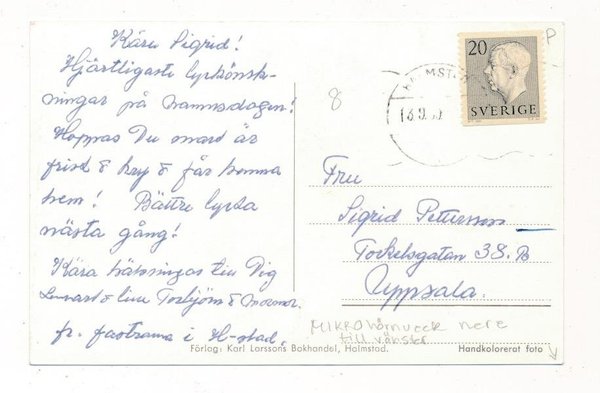 Kära Sigrid!
Hjärtligaste lyckönsk-
ningar på namnsdagen!
Hoppas Du snart är
frisk & kry & får komma
hem! Bättre lycka
nästa gång!
Kära hälsningar till Dig
Lennart & lilla Torbjörn & mormor.
fr. fastrarna i H-stad.
20
SVERIGE
8
P
Fru
Sigrid Pettersson
Torkelsgatan 38. B
Uppsala.
MIKROhörnveck nere
till vänster
Förlag: Karl Larssons Bokhandel, Halmstad.
Handkolorerat foto